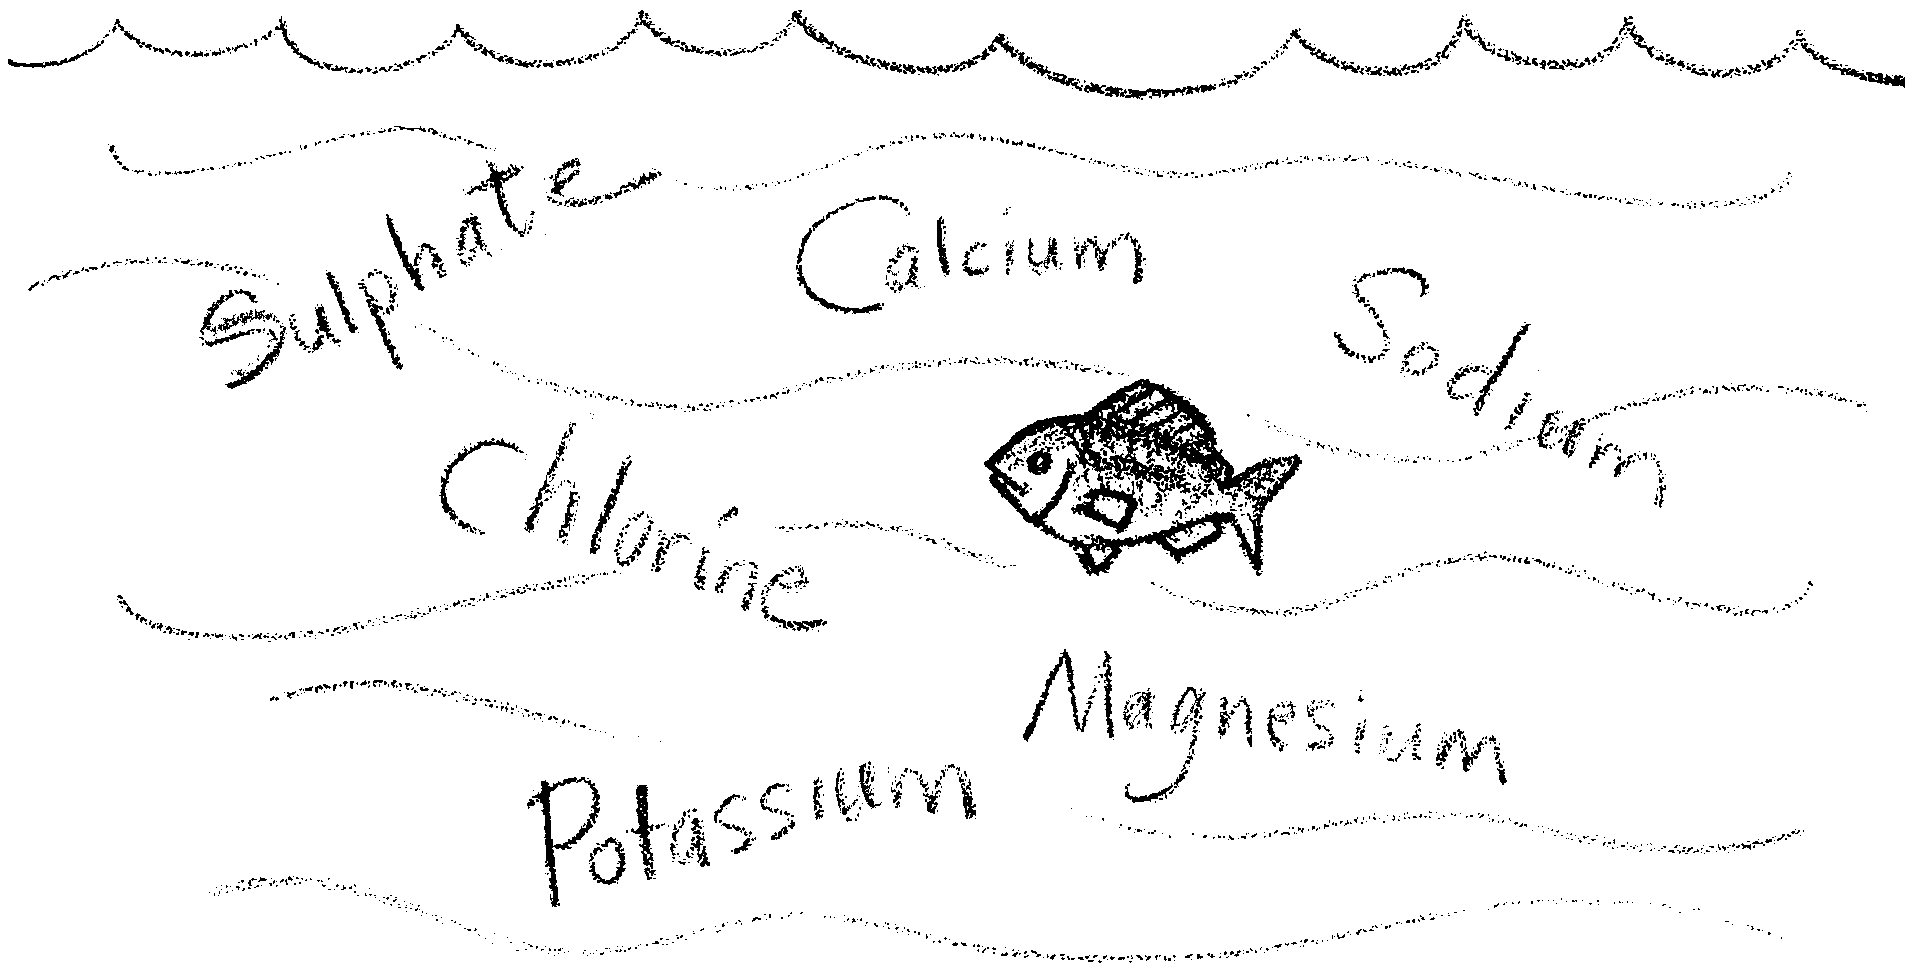 Sulphate
Calcium
Sodium
Chlorine
Magnesium
Potassium